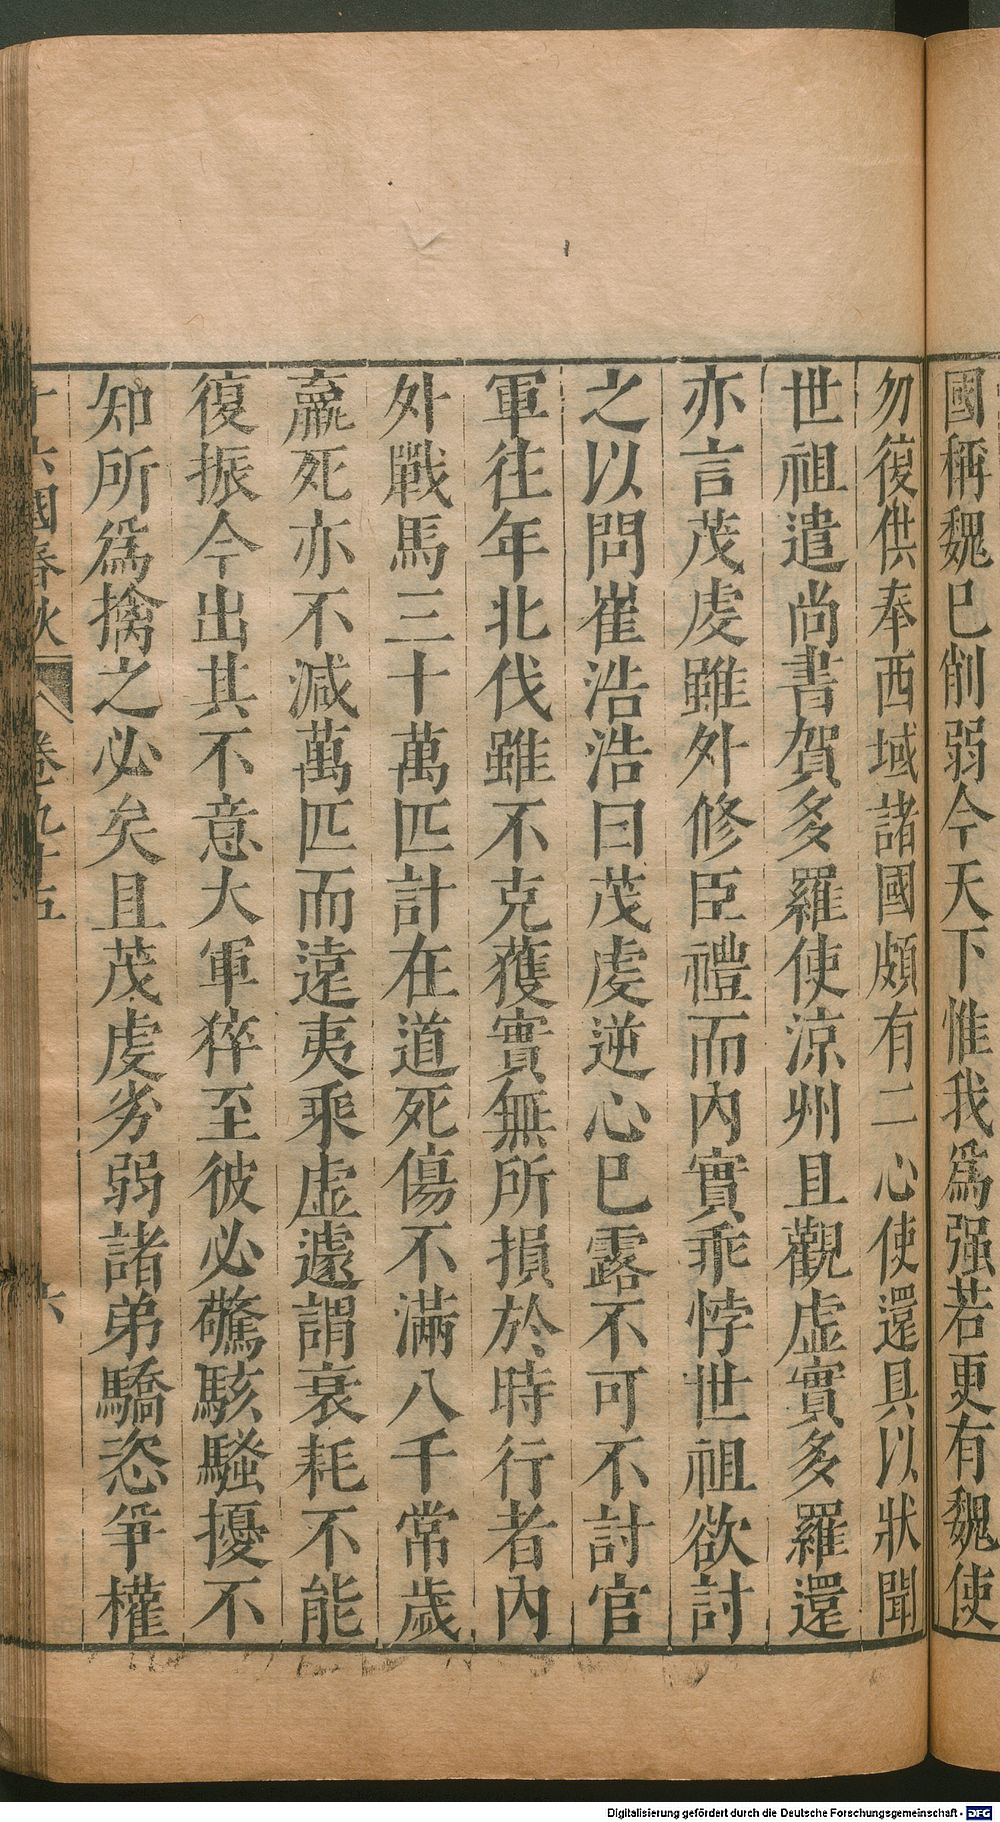 國稱魏已削弱今天下惟我爲强若更有魏使
勿復供奉西域諸國頗有二心使還具以狀聞
世祖遣尚書賀多羅使涼州且觀虛實多羅還
亦言茂虔雖外修臣禮而內實乖悖世祖欲討
之以問崔浩浩曰茂虔逆心已露不可不討官
軍往年北伐雖不克獲實無所損於時行者內
外戰馬三十萬匹計在道死傷不滿八千常歲
羸死亦不減萬匹而遠夷乘虛遽謂衰耗不能
復振今出其不意大軍猝至彼必驚駭騷擾不
知所爲擒之必矣且茂虔劣弱諸弟驕恣爭權
十六國春秋 卷九十五 六
Digitalisierung gefördert durch die Deutsche Forschungsgemeinschaft - DFG